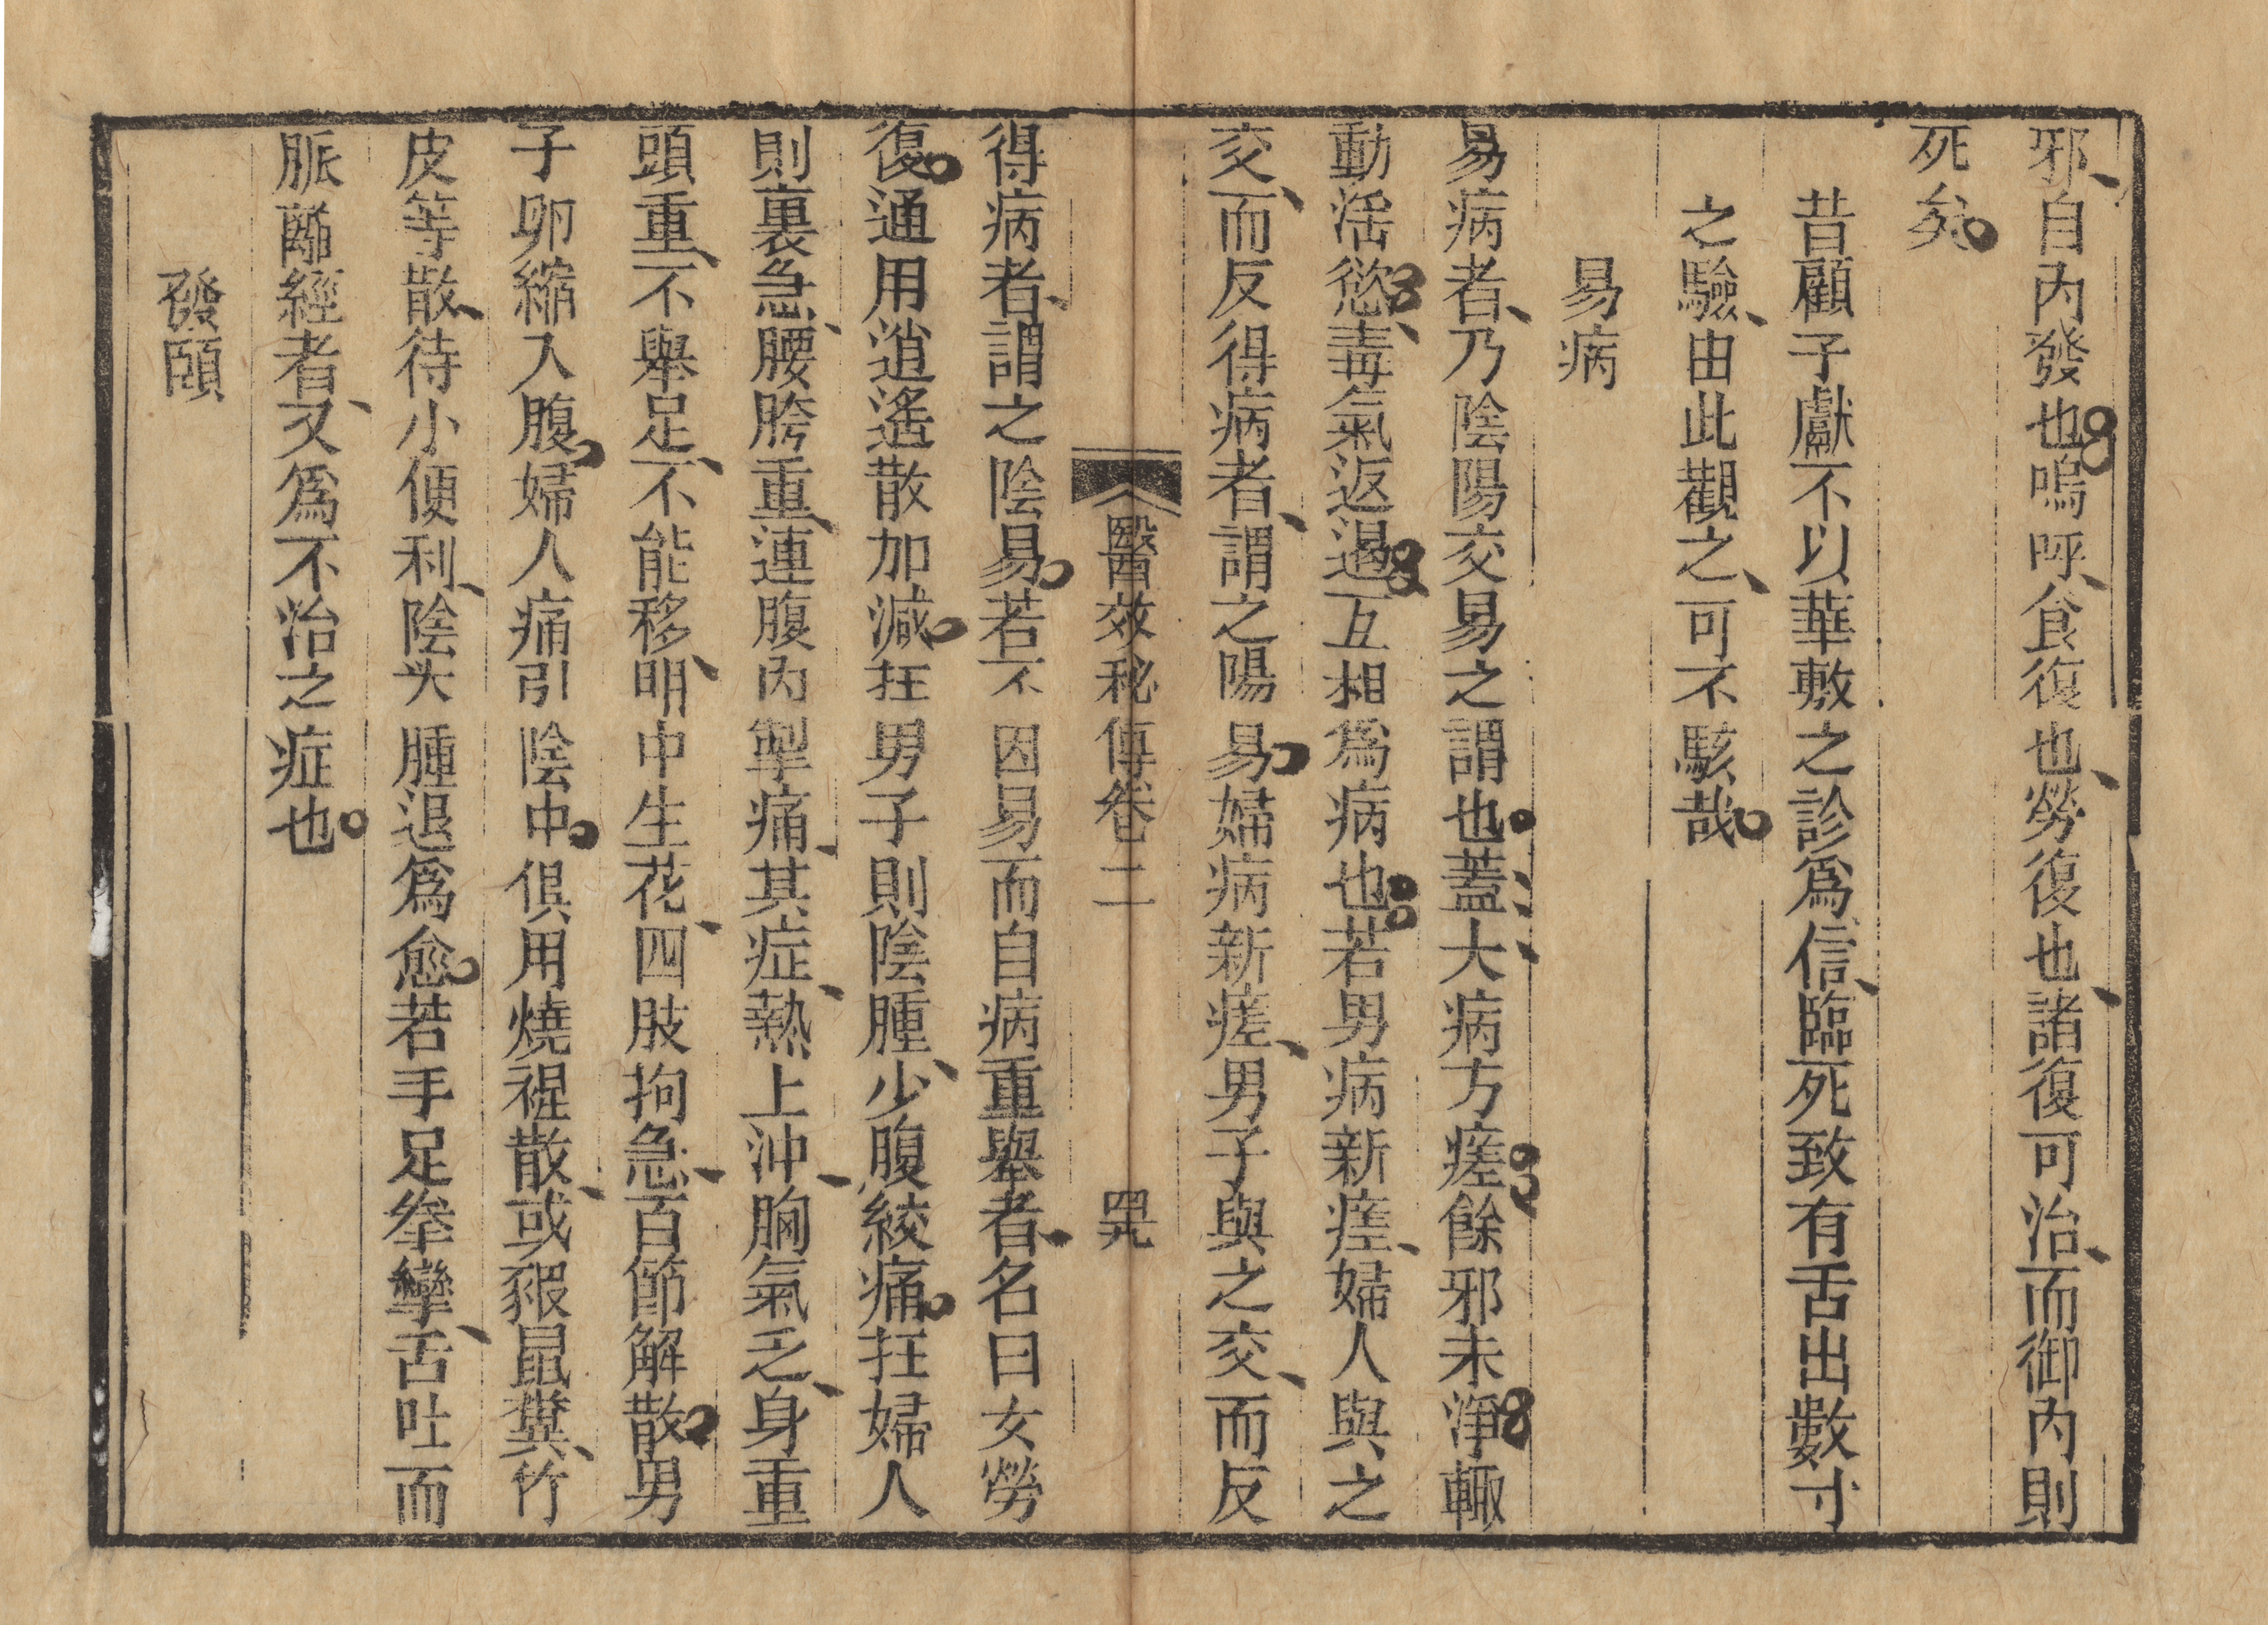 邪自內發也嗚呼食復也勞復也諸復可治而御內則
死矣
昔顧子獻不以華敷之診爲信臨死致有舌出數寸
之驗由此觀之可不駭哉
易病
易病者乃陰陽交易之謂也蓋大病方瘥餘邪未淨輙
動淫慾毒氣返過互相爲病也若男病新瘥婦人與之
交而反得病者謂之陽易婦病新瘥男子與之交而反
醫效秘傳卷二 四九
得病者謂之陰易若不因易而自病重舉者名曰女勞
復通用逍遙散加減在男子則陰腫少腹絞痛在婦人
則裏急腰胯重連腹內掣痛其症熱上沖胸氣乏身重
頭重不舉足不能移明中生花四肢拘急百節解散男
子卵縮入腹婦人痛引陰中俱用燒裩散或豭鼠糞竹
皮等散待小便利陰头腫退爲愈若手足拳攣舌吐而
脈離經者又爲不治之症也
發頤